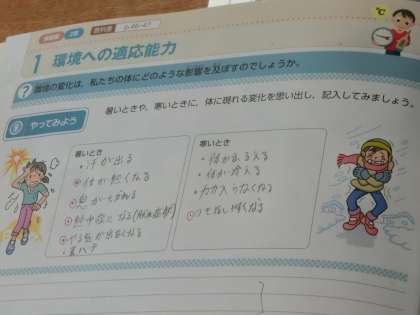 教科書 p.46-47
℃
1 環境への適応能力
? 環境の変化は、私たちの体にどのような影響を及ぼすのでしょうか。
やってみよう
暑いときや、寒いときに、体に現れる変化を思い出し、記入してみましょう。
暑いとき
・汗が出る
・体が熱くなる
・息が切れる
・熱中症になる(脱水症状)
・やる気が出なくなる
・夏バテ
寒いとき
・体がふるえる
・体が冷える
・力が入らなくなる